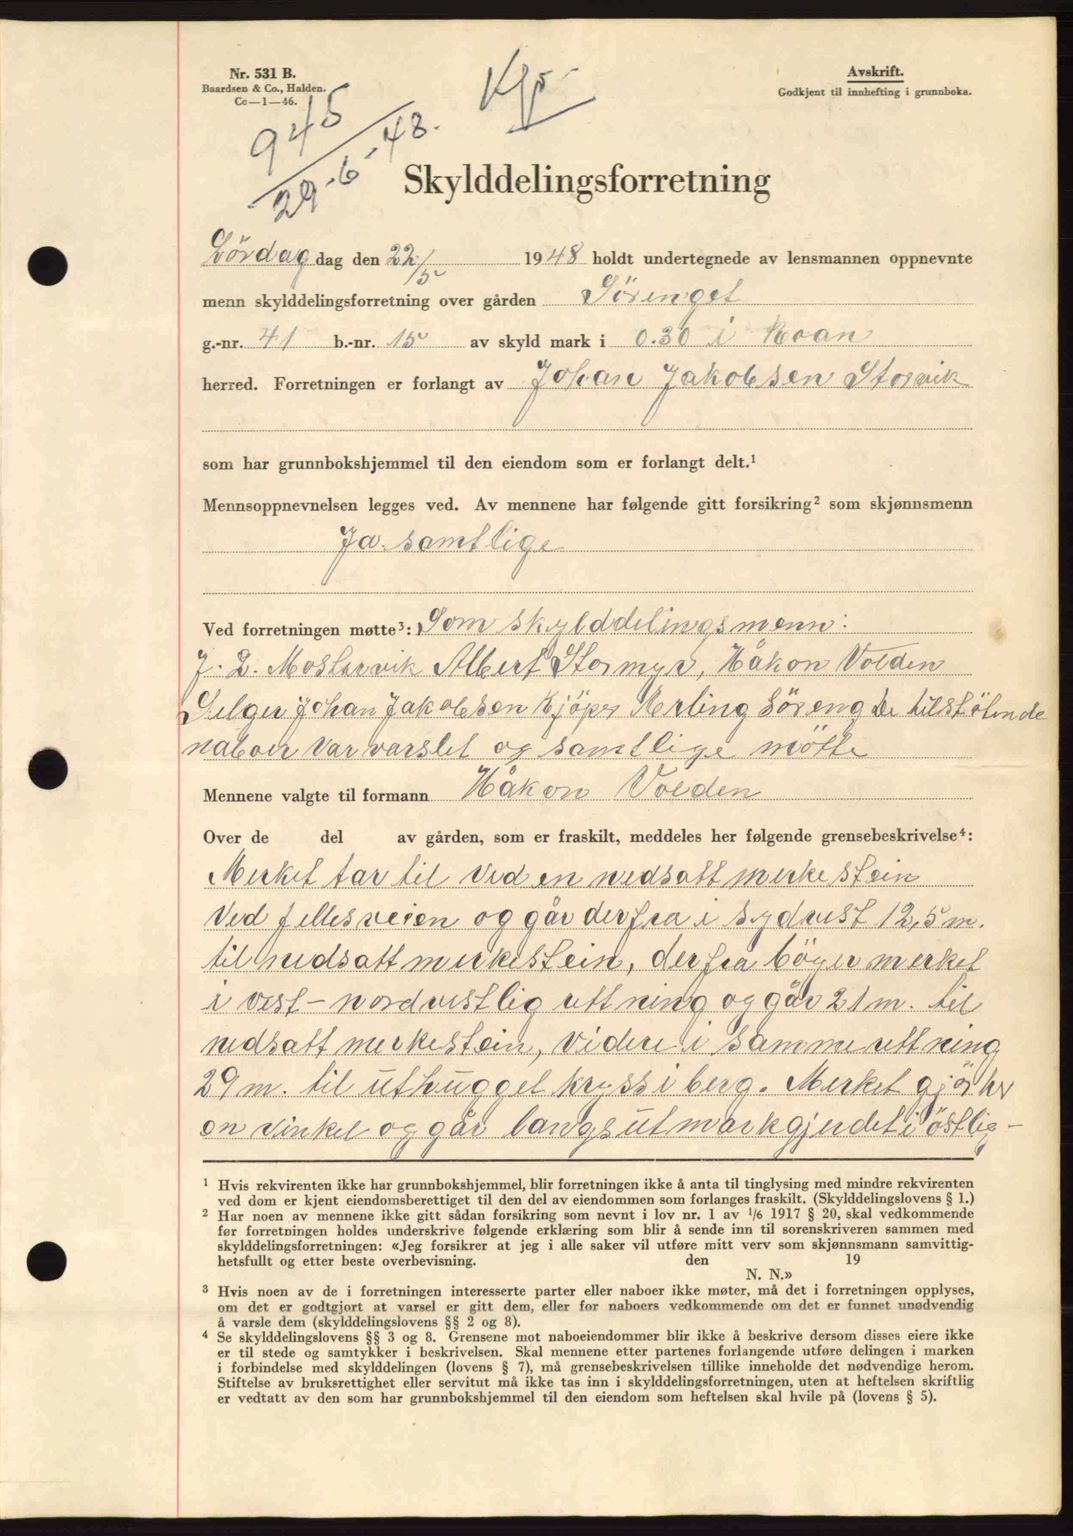 Nr. 531 B.
Baardsen & Co., Halden.
Cc—1—46.
Avskrift.
Godkjent til innhefting i grunnboka.
945
29-6-48.
Skylddelingsforretning
Lördag dag den 22/5 1948 holdt undertegnede av lensmannen oppnevnte
menn skylddelingsforretning over gården Sörenget
g.-nr. 41 b.-nr. 15 av skyld mark i 0.30 i Roan
herred. Forretningen er forlangt av Johan Jakobsen Storvik
som har grunnbokshjemmel til den eiendom som er forlangt delt.¹
Mennsoppnevnelsen legges ved. Av mennene har følgende gitt forsikring² som skjønnsmenn
Ja. samtlige
Ved forretningen møtte³: Som skylddelingsmenn:
J. L. Mostervik Albert Stormyr, Håkon Volden
Selger Johan Jakobsen Kjöper Merling Söreng De tilstötende
naboer var varslet og samtlige mötte
Mennene valgte til formann Håkon Volden
Over de del av gården, som er fraskilt, meddeles her følgende grensebeskrivelse⁴:
Merket tar til ved en nedsatt merkestein
ved fellesveien og går derfra i sydvest 12,5 m.
til nedsatt merkestein, derfra böyer merket
i vest-nordvestlig rettning og går 21 m. til
nedsatt merkestein, videre i samme rettning
29 m. til uthugget kryss i berg. Merket gjör her
en vinkel og går langs utmarkgjerdet i östlig-
¹ Hvis rekvirenten ikke har grunnbokshjemmel, blir forretningen ikke å anta til tinglysing med mindre rekvirenten
ved dom er kjent eiendomsberettiget til den del av eiendommen som forlanges fraskilt. (Skylddelingslovens § 1.)
² Har noen av mennene ikke gitt sådan forsikring som nevnt i lov nr. 1 av 1/6 1917 § 20, skal vedkommende
før forretningen holdes underskrive følgende erklæring som blir å sende inn til sorenskriveren sammen med
skylddelingsforretningen: «Jeg forsikrer at jeg i alle saker vil utføre mitt verv som skjønnsmann samvittig-
hetsfullt og etter beste overbevisning. den 19
N. N.»
³ Hvis noen av de i forretningen interesserte parter eller naboer ikke møter, må det i forretningen opplyses,
om det er godtgjort at varsel er gitt dem, eller for naboers vedkommende om det er funnet unødvendig
å varsle dem (skylddelingslovens §§ 2 og 8).
⁴ Se skylddelingslovens §§ 3 og 8. Grensene mot naboeiendommer blir ikke å beskrive dersom disses eiere ikke
er til stede og samtykker i beskrivelsen. Skal mennene etter partenes forlangende utføre delingen i marken
i forbindelse med skylddelingen (lovens § 7), må grensebeskrivelsen tillike inneholde det nødvendige herom.
Stiftelse av bruksrettighet eller servitut må ikke tas inn i skylddelingsforretningen, uten at heftelsen skriftlig
er vedtatt av den som har grunnbokshjemmel til den eiendom som heftelsen skal hvile på (lovens § 5).